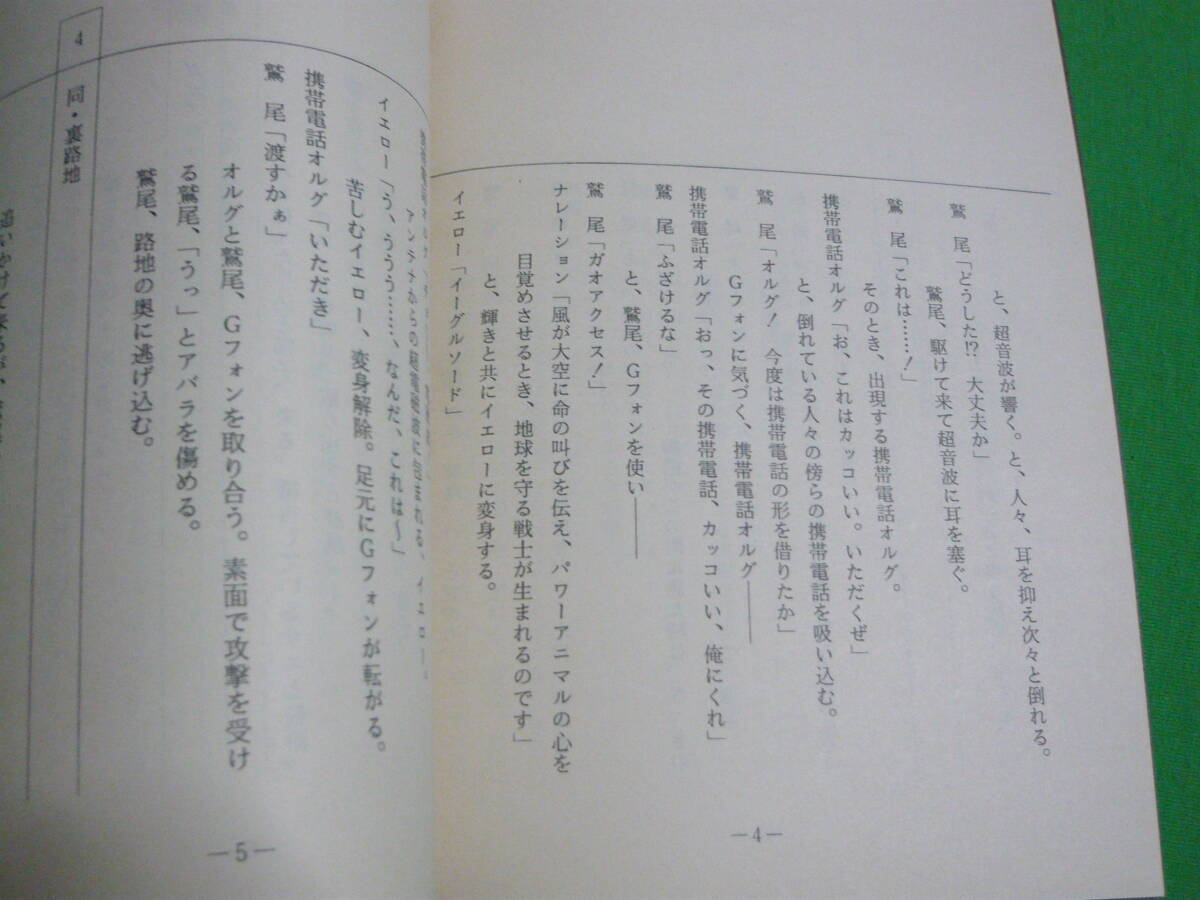 と、超音波が響く。と、人々、耳を抑え次々と倒れる。
鷲　尾「どうした!?　大丈夫か」
鷲尾、駆けて来て超音波に耳を塞ぐ。
鷲　尾「これは……！」
そのとき、出現する携帯電話オルグ。
携帯電話オルグ「お、これはカッコいい。いただくぜ」
と、倒れている人々の傍らの携帯電話を吸い込む。
鷲　尾「オルグ！　今度は携帯電話の形を借りたか」
Gフォンに気づく、携帯電話オルグ――
携帯電話オルグ「おっ、その携帯電話、カッコいい、俺にくれ」
鷲　尾「ふざけるな」
と、鷲尾、Gフォンを使い――
鷲　尾「ガオアクセス！」
ナレーション「風が大空に命の叫びを伝え、パワーアニマルの心を
目覚めさせるとき、地球を守る戦士が生まれるのです」
と、輝きと共にイエローに変身する。
イエロー「イーグルソード」
―4―
イエロー「う、ううう……、なんだ、これは～」
苦しむイエロー、変身解除。足元にGフォンが転がる。
携帯電話オルグ「いただき」
鷲　尾「渡すかぁ」
オルグと鷲尾、Gフォンを取り合う。素面で攻撃を受け
る鷲尾、「うっ」とアバラを傷める。
鷲尾、路地の奥に逃げ込む。
4　同・裏路地
―5―